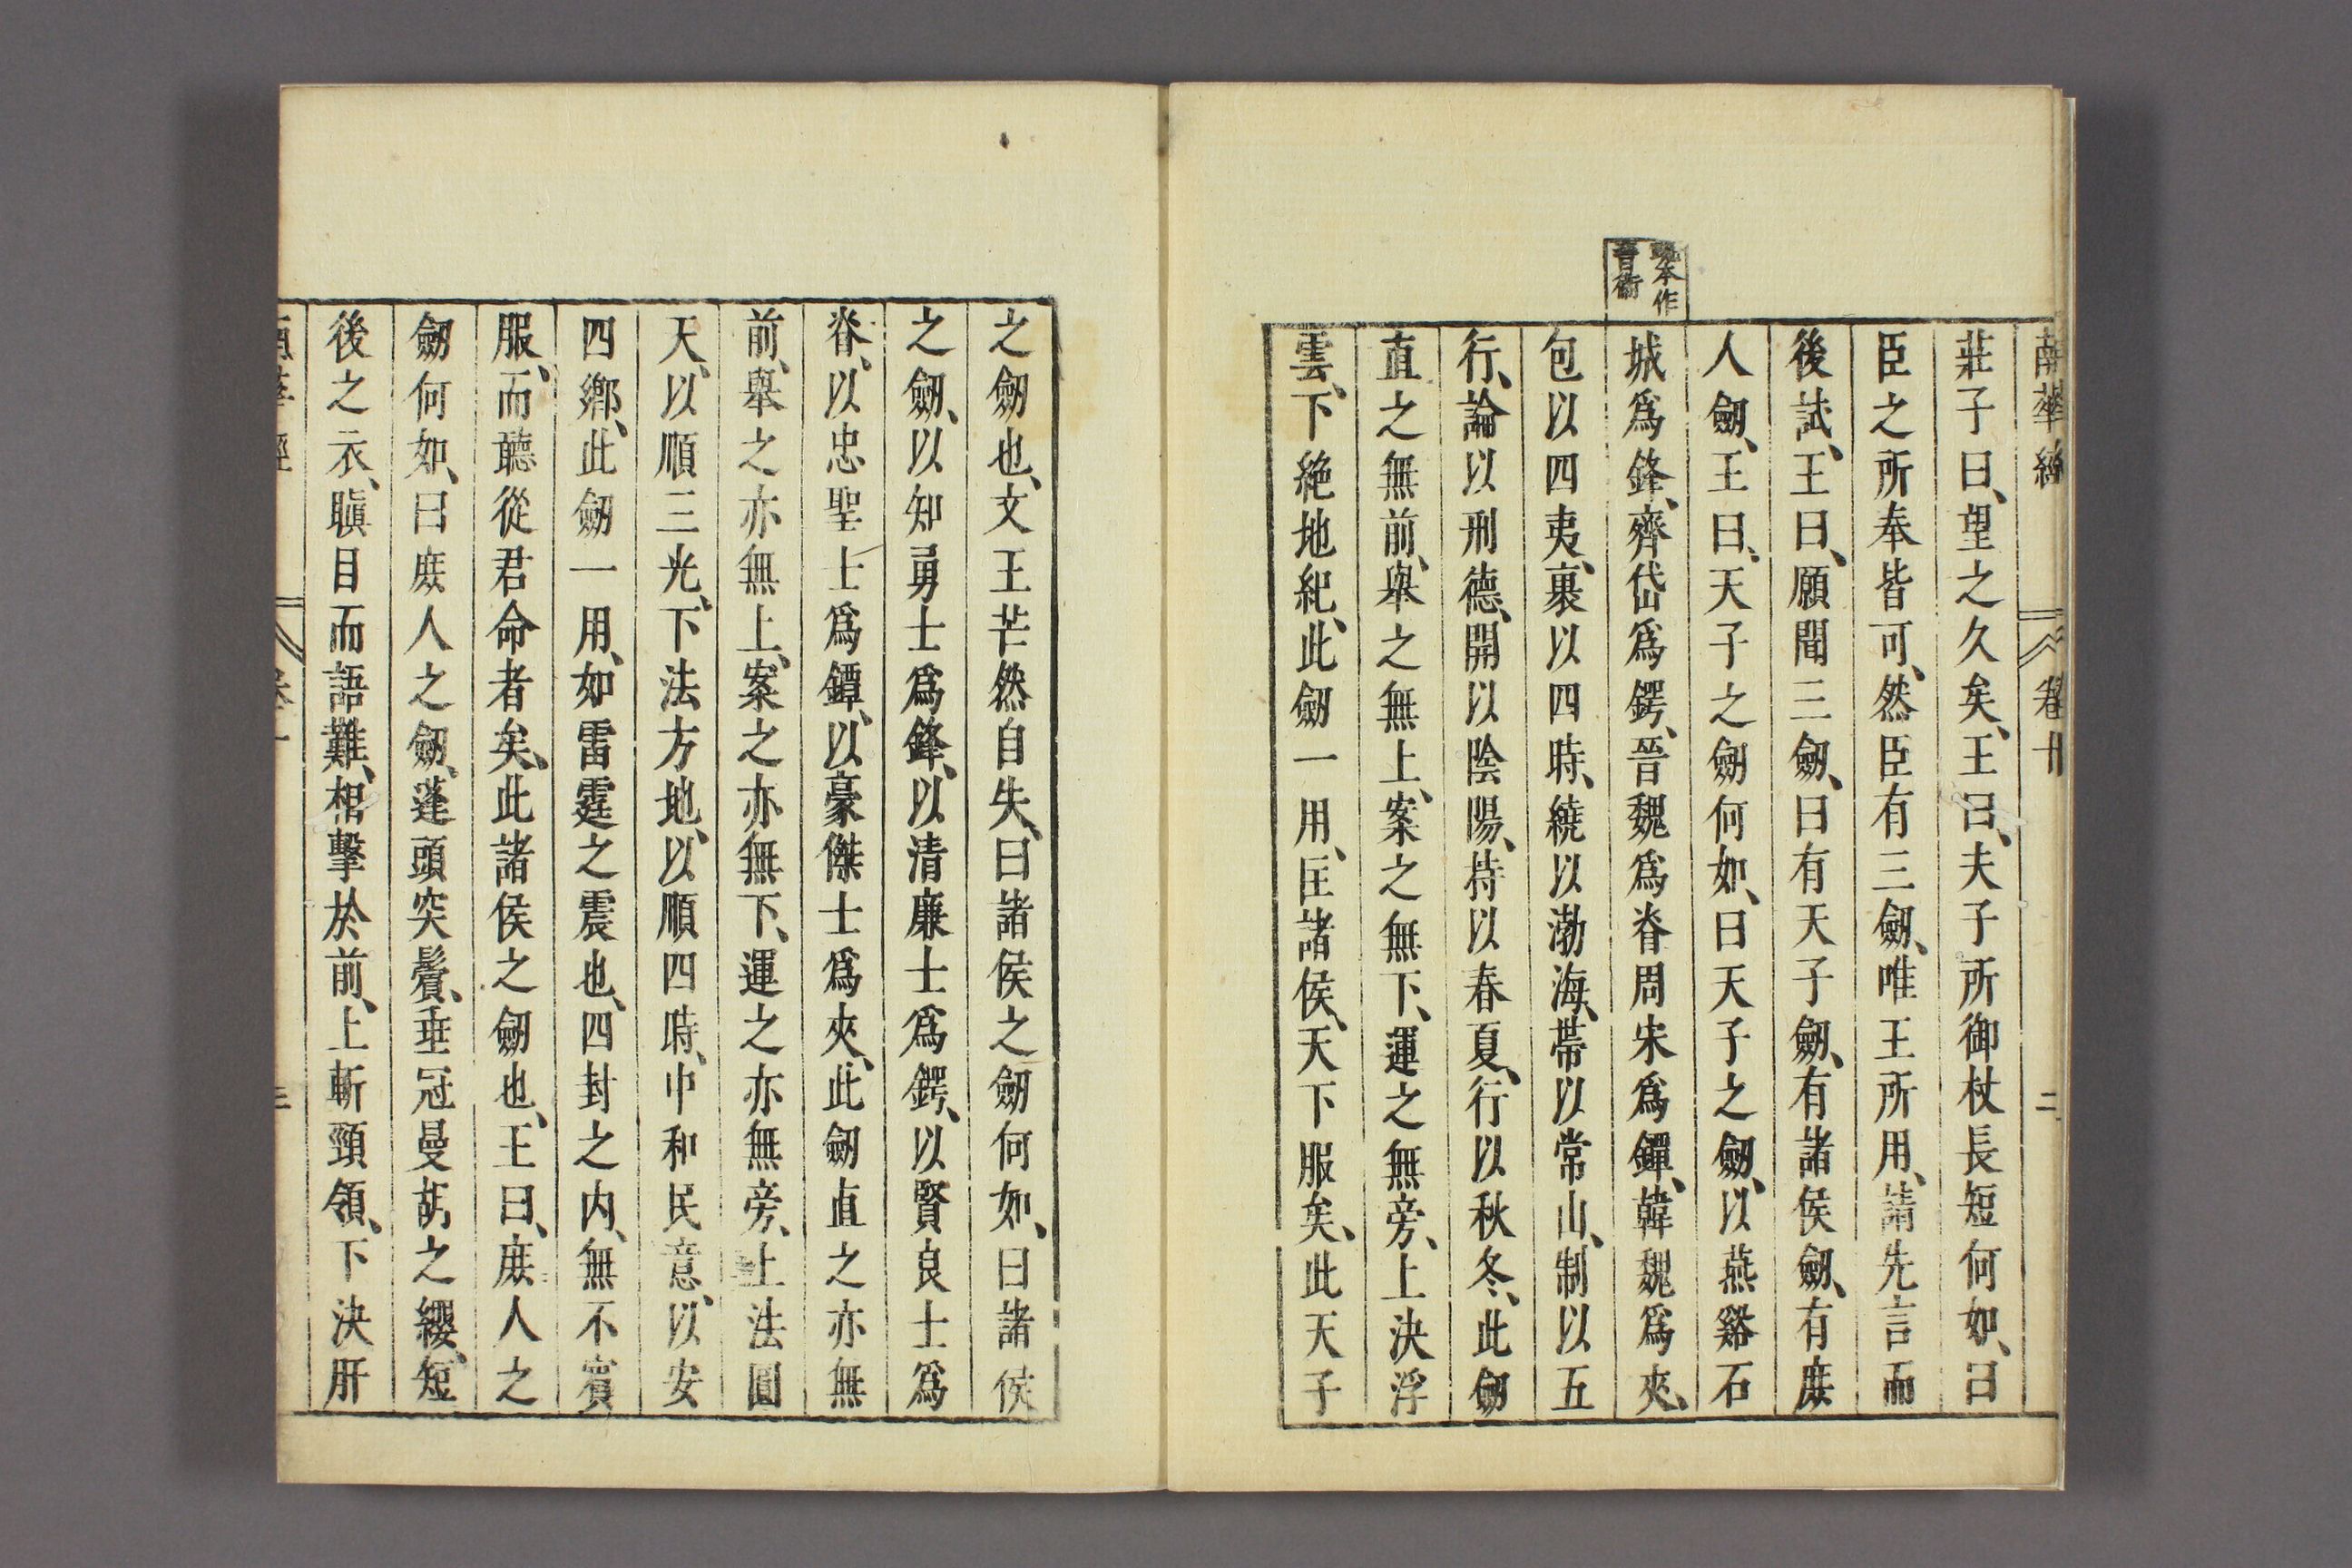 南華經 卷十 二
莊子曰、望之久矣、王曰、夫子所御杖長短何如、曰
臣之所奉皆可、然臣有三劒、唯王所用、請先言而
後試、王曰、願聞三劒、曰有天子劒、有諸侯劒、有庶
人劒、王曰、天子之劒何如、曰天子之劒、以燕谿石
城爲鋒、齊岱爲鍔、晉魏爲脊周宋爲鐔、韓魏爲夾、
本作
晉衞
包以四夷、裹以四時、繞以渤海、帶以常山、制以五
行、論以刑德、開以陰陽、持以春夏、行以秋冬、此劒
直之無前、舉之無上、案之無下、運之無旁、上決浮
雲、下絶地紀、此劒一用、匡諸侯、天下服矣、此天子
之劒也、文王芒然自失、曰諸侯之劒何如、曰諸侯
之劒、以知勇士爲鋒、以清廉士爲鍔、以賢良士爲
脊、以忠聖士爲鐔、以豪傑士爲夾、此劒直之亦無
前、舉之亦無上、案之亦無下、運之亦無旁、上法圓
天、以順三光、下法方地、以順四時、中和民意、以安
四鄉、此劒一用、如雷霆之震也、四封之内、無不賓
服、而聽從君命者矣、此諸侯之劒也、王曰、庶人之
劒何如、曰庶人之劒、蓬頭突鬢、垂冠曼胡之纓、短
後之衣、瞋目而語難、相擊於前、上斬頸領、下決肝
南華經 三